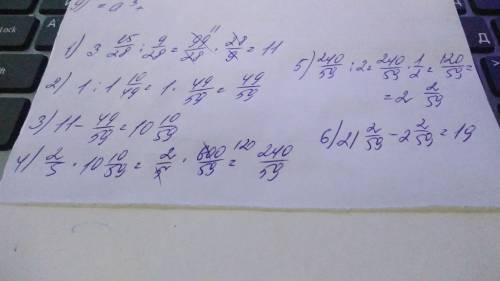 1) 3 15/28 : 9/28 = 99/28 · 28/9 = 11
2) 1 : 1 10/49 = 1 · 49/59 = 49/59
3) 11 - 49/59 = 10 10/59
4) 2/5 · 10 10/59 = 2/5 · 600/59 120 = 240/59
5) 240/59 : 2 = 240/59 · 1/2 = 120/59 =
= 2 2/59
6) 21 2/59 - 2 2/59 = 19